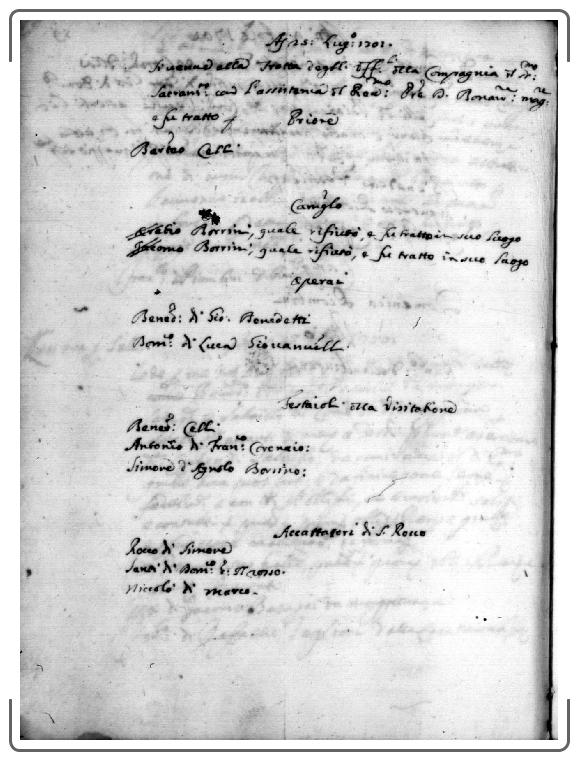 Aj 25: Lug.o 1701.
Si venne alla Tratta degli Off.li della Compagnia del S.mo
Sacram.to con l'assistenza del Rev.mo: Pre D. Bonav.ra: mag.re
e fu tratto Priore
Barteo Celli
Camarlo
Oratio Borrini, quale rifiutò, e fu tratto in suo luogo
Giacomo Borrini, quale rifiutò, e fu tratto in suo luogo
Operai
Bened.o: di Gio. Benedetti
Dom.o: di Luca Giovanelli
Festaioli della Visitatione
Bened.o: Celli
Antonio di Fran.co
Simone d'Agnolo
Accattatori di S. Rocco
Rocco di Simone
Santi di Dom.o
Niccolò di Marco.